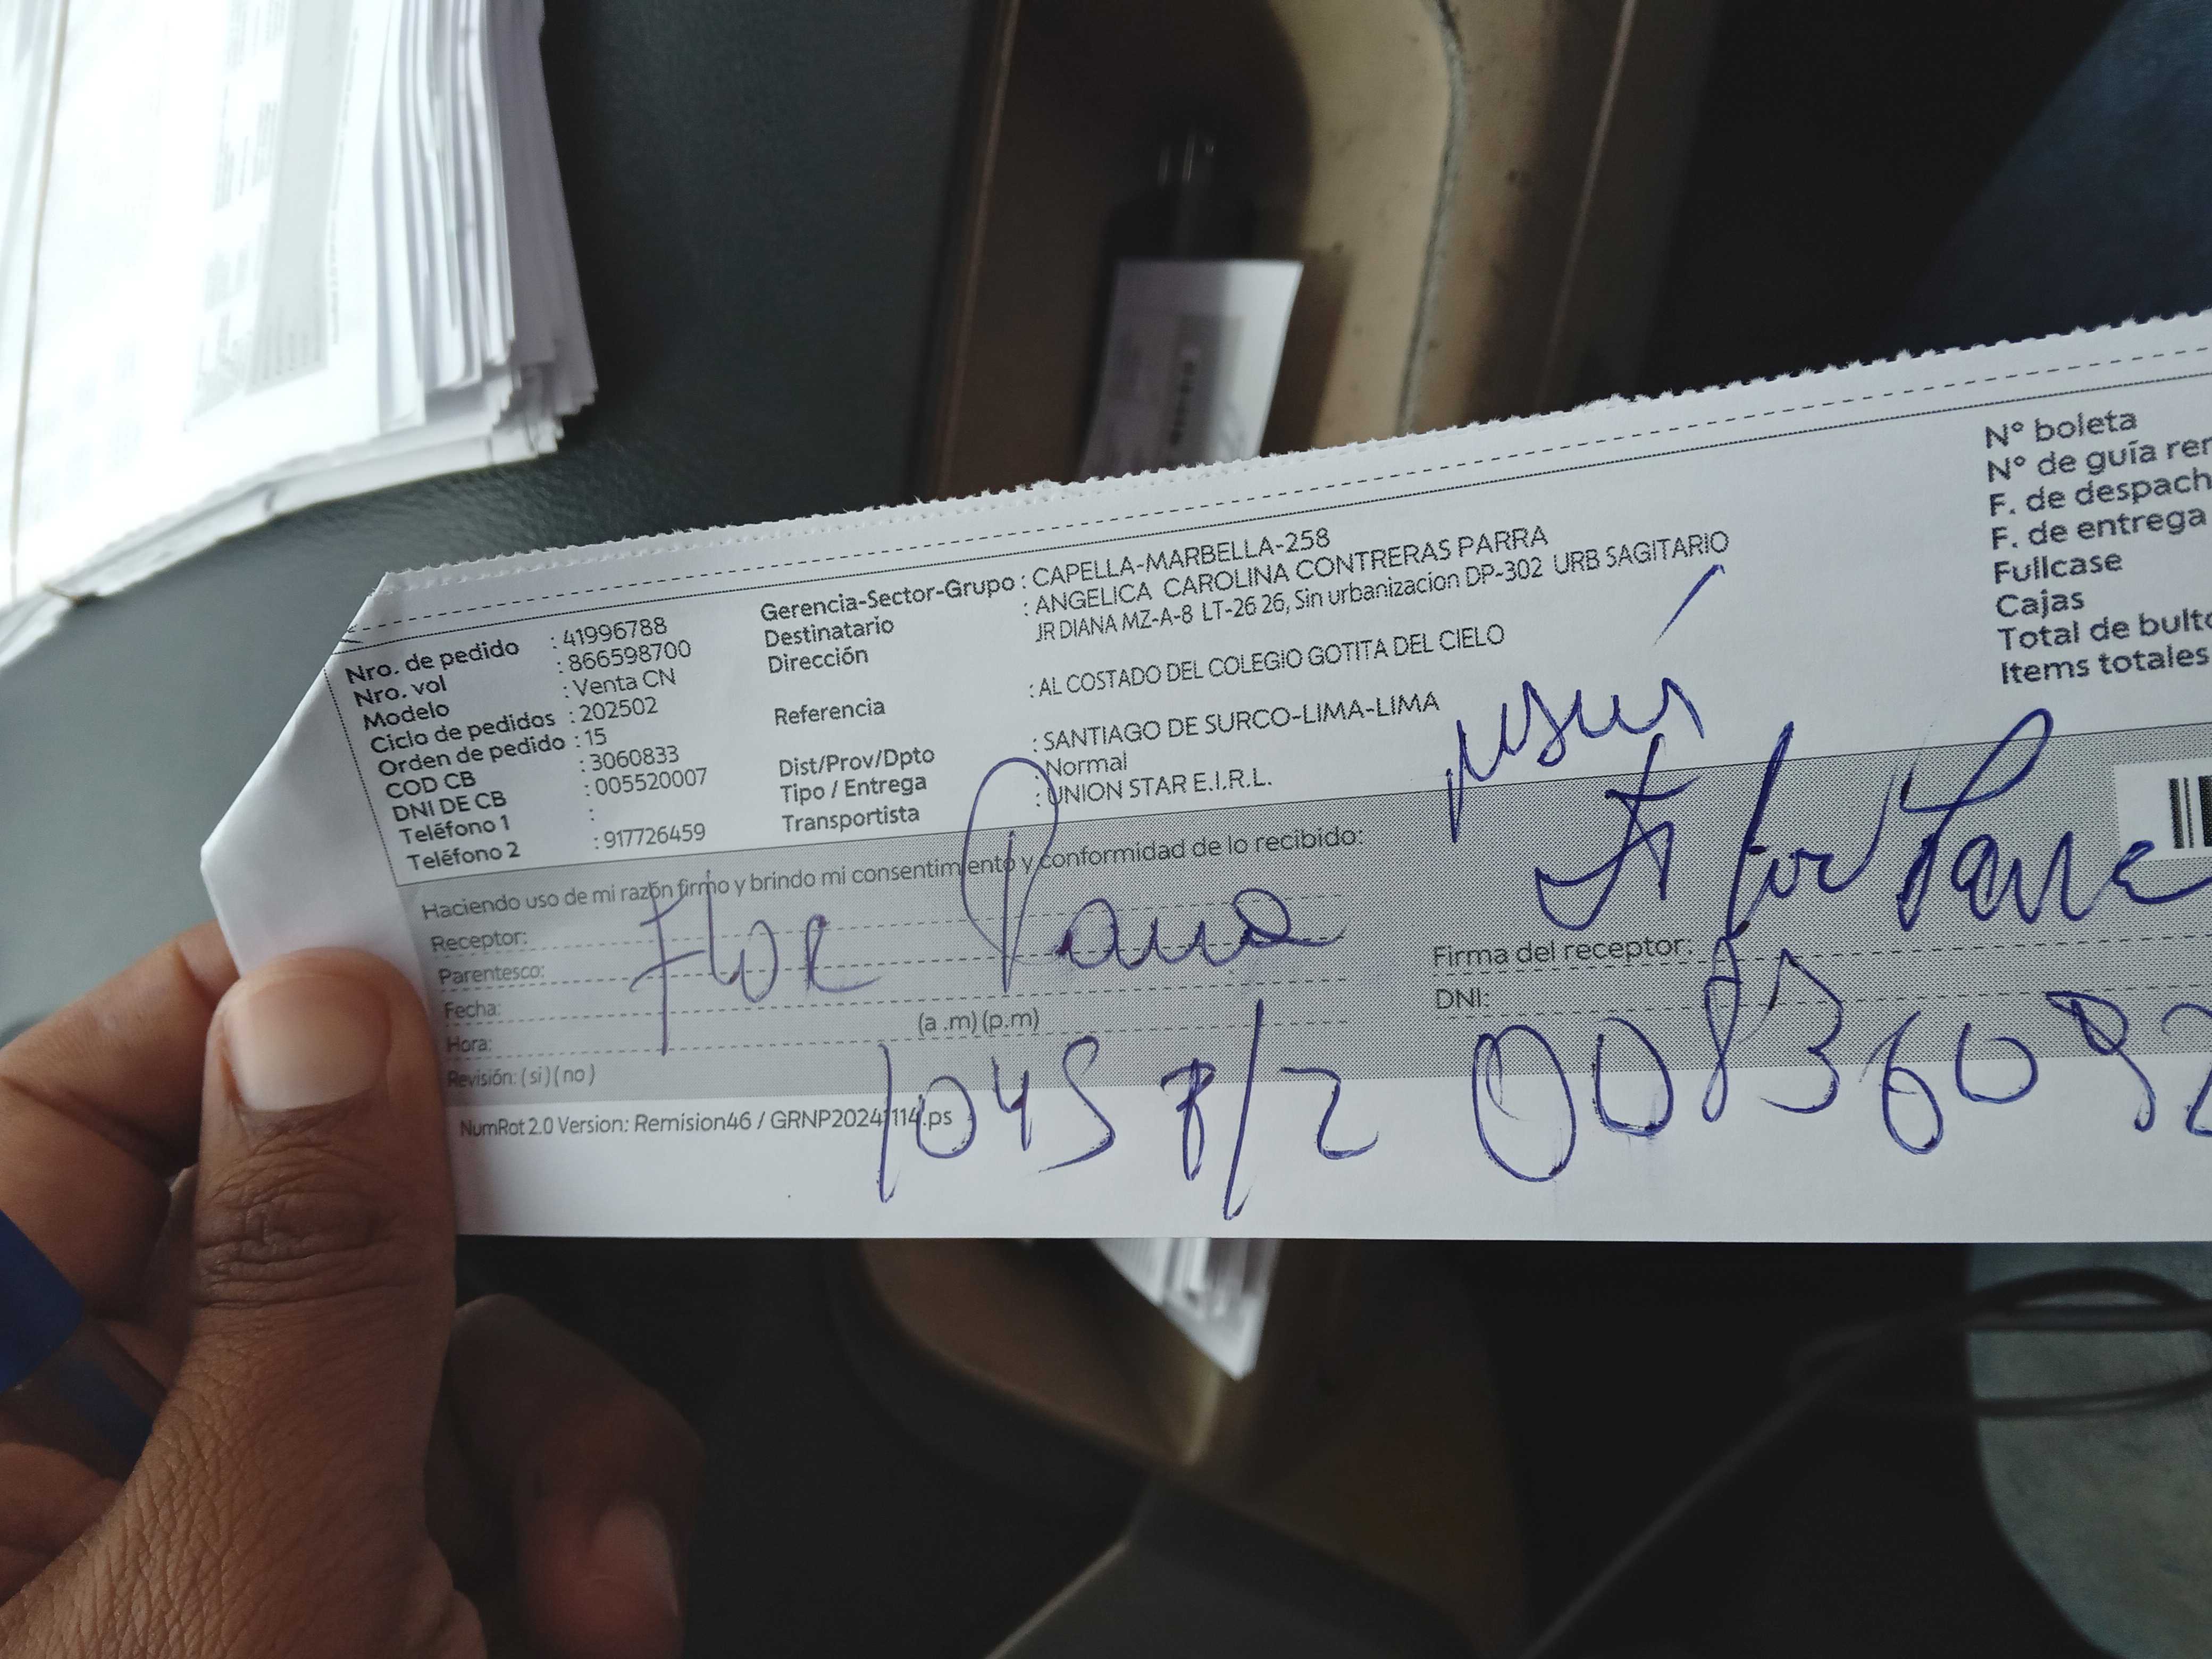 Nro. de pedido : 41996788
Nro. vol : 866598700
Modelo : Venta CN
Ciclo de pedidos : 202502
Orden de pedido : 15
COD CB : 3060833
DNI DE CB : 005520007
Teléfono 1 :
Teléfono 2 : 917726459
Gerencia-Sector-Grupo : CAPELLA-MARBELLA-258
Destinatario : ANGELICA CAROLINA CONTRERAS PARRA
Dirección JR DIANA MZ-A-8 LT-26 26, Sin urbanizacion DP-302 URB SAGITARIO
Referencia : AL COSTADO DEL COLEGIO GOTITA DEL CIELO
Dist/Prov/Dpto : SANTIAGO DE SURCO-LIMA-LIMA
Tipo / Entrega : Normal
Transportista : UNION STAR E.I.R.L.
N° boleta
N° de guía rem
F. de despach
F. de entrega
Fullcase
Cajas
Total de bulto
Items totales
Haciendo uso de mi razón firmo y brindo mi consentimiento y conformidad de lo recibido:
Receptor:
Parentesco:
Flor Parra
Fecha:
Hora: (a .m) (p.m)
Revisión: ( si ) ( no )
1045 8/2
Flor Parra
Firma del receptor:
DNI:
00836092
NumRot 2.0 Version: Remision46 / GRNP20241114.ps